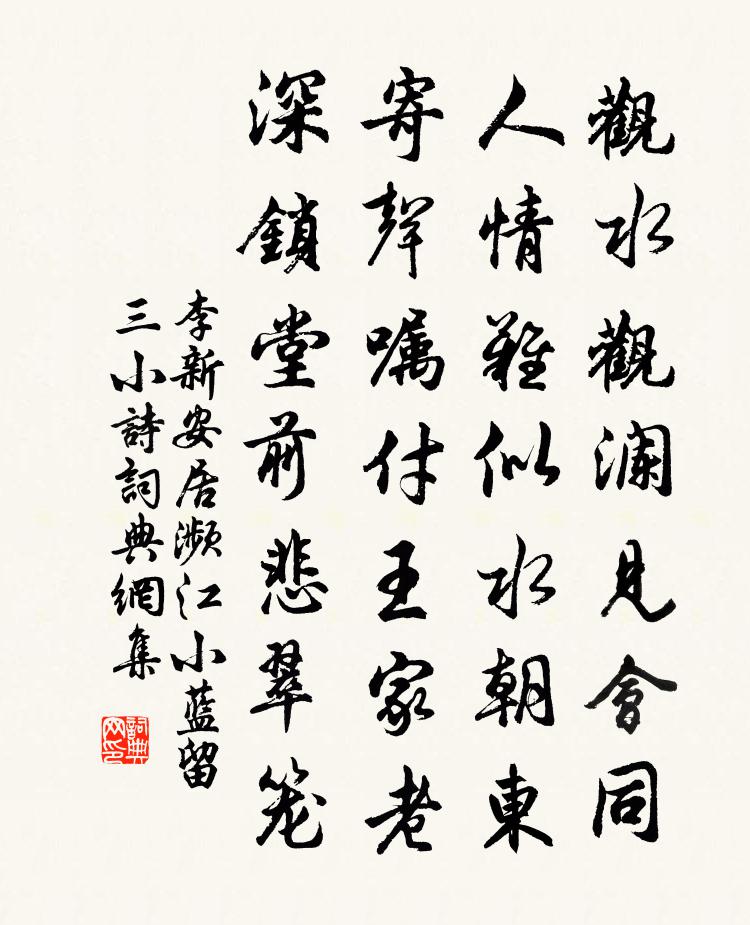 觀水觀瀾見會同
人情難似水朝東
寄聲囑付王家老
深鎖堂前悲翠笼
李新安居瀕江小藍留
三小詩詞典網集
詞典网印